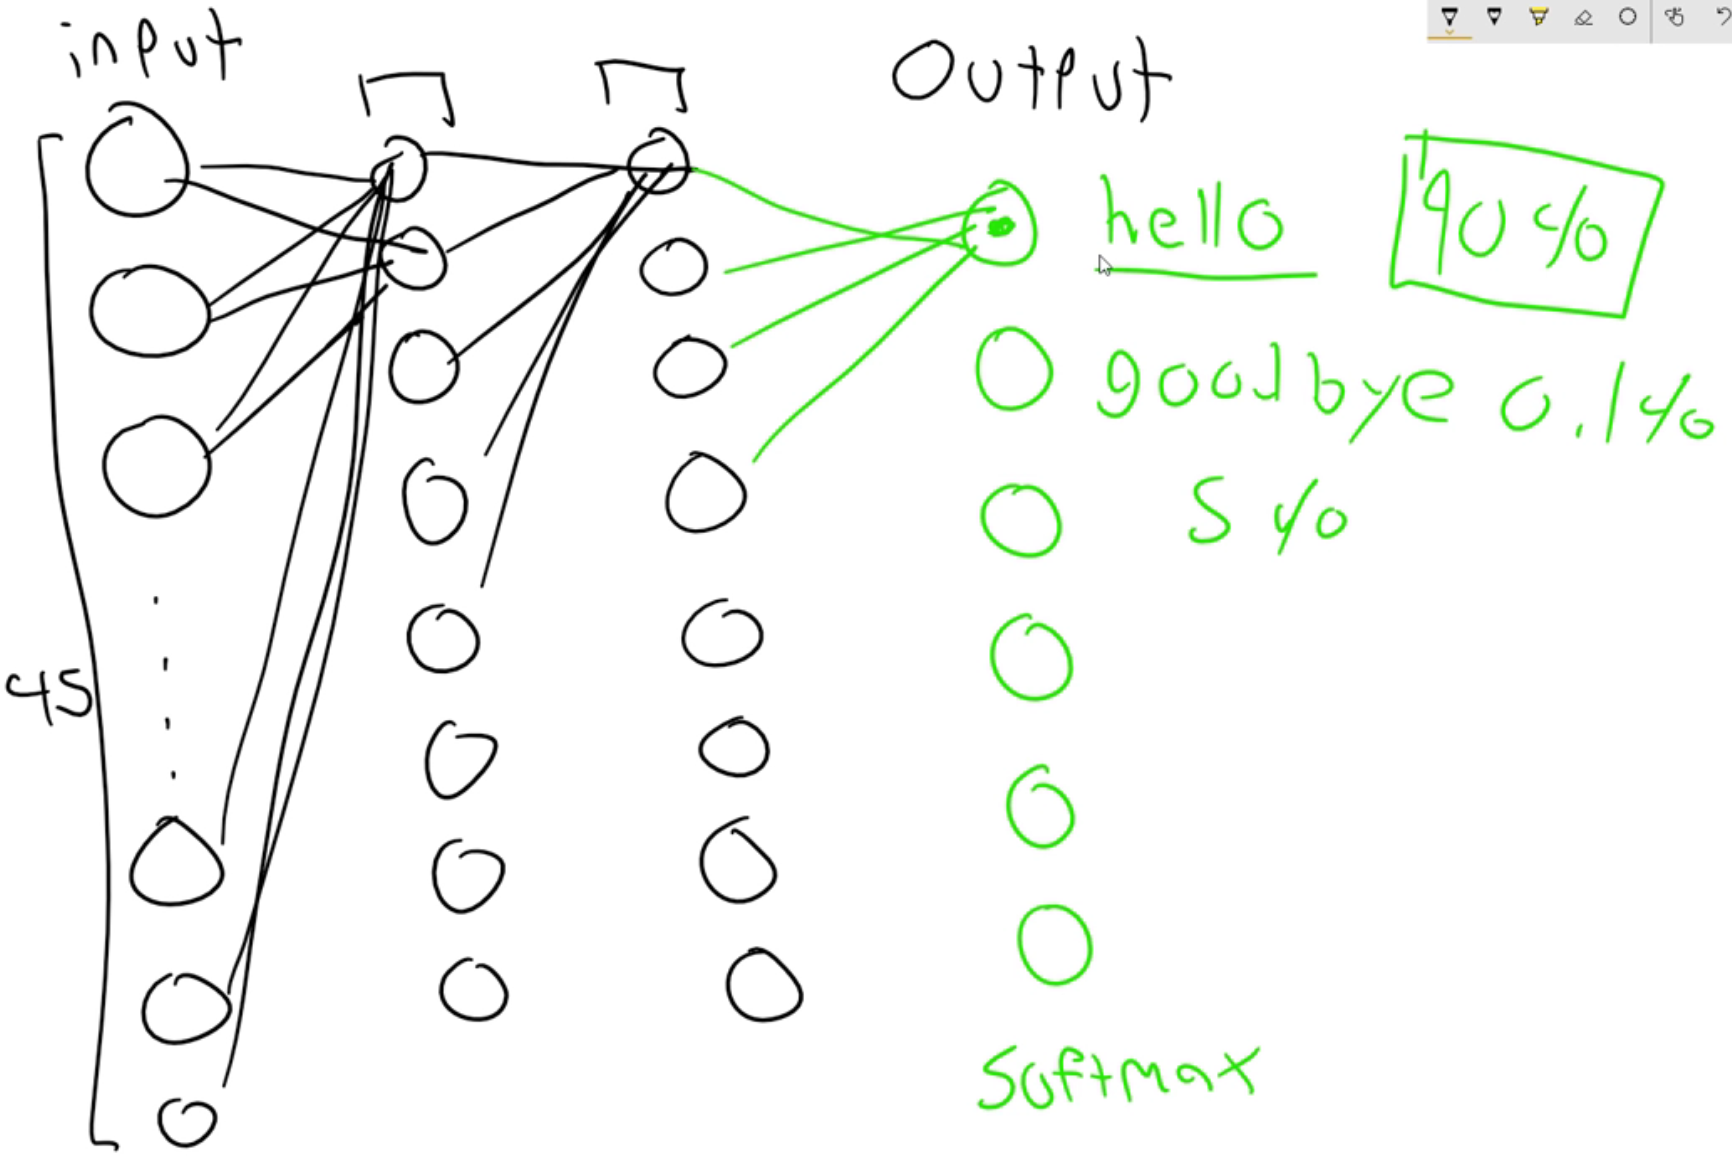 input
Output
hello 90%
goodbye 0.1%
5%
45
Softmax